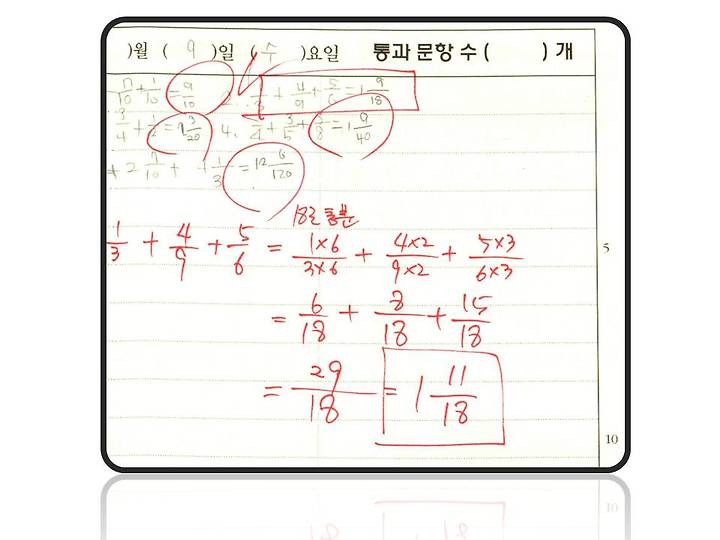 )월 ( 9 )일 ( 수 )요일 통과 문항 수 ( ) 개
7/10 + 1/10 = 9/10 2. 1/3 + 4/9 + 5/6 = 1 9/18
3/4 + 1/2 = 3/20 4. 1/4 + 3/5 + 1/8 = 1 9/40
+ 2 7/10 + 1 1/3 = 12 6/120
18로 통분
1/3 + 4/9 + 5/6 = 1×6/3×6 + 4×2/9×2 + 5×3/6×3
5
= 6/18 + 8/18 + 15/18
= 29/18 = 1 11/18
10